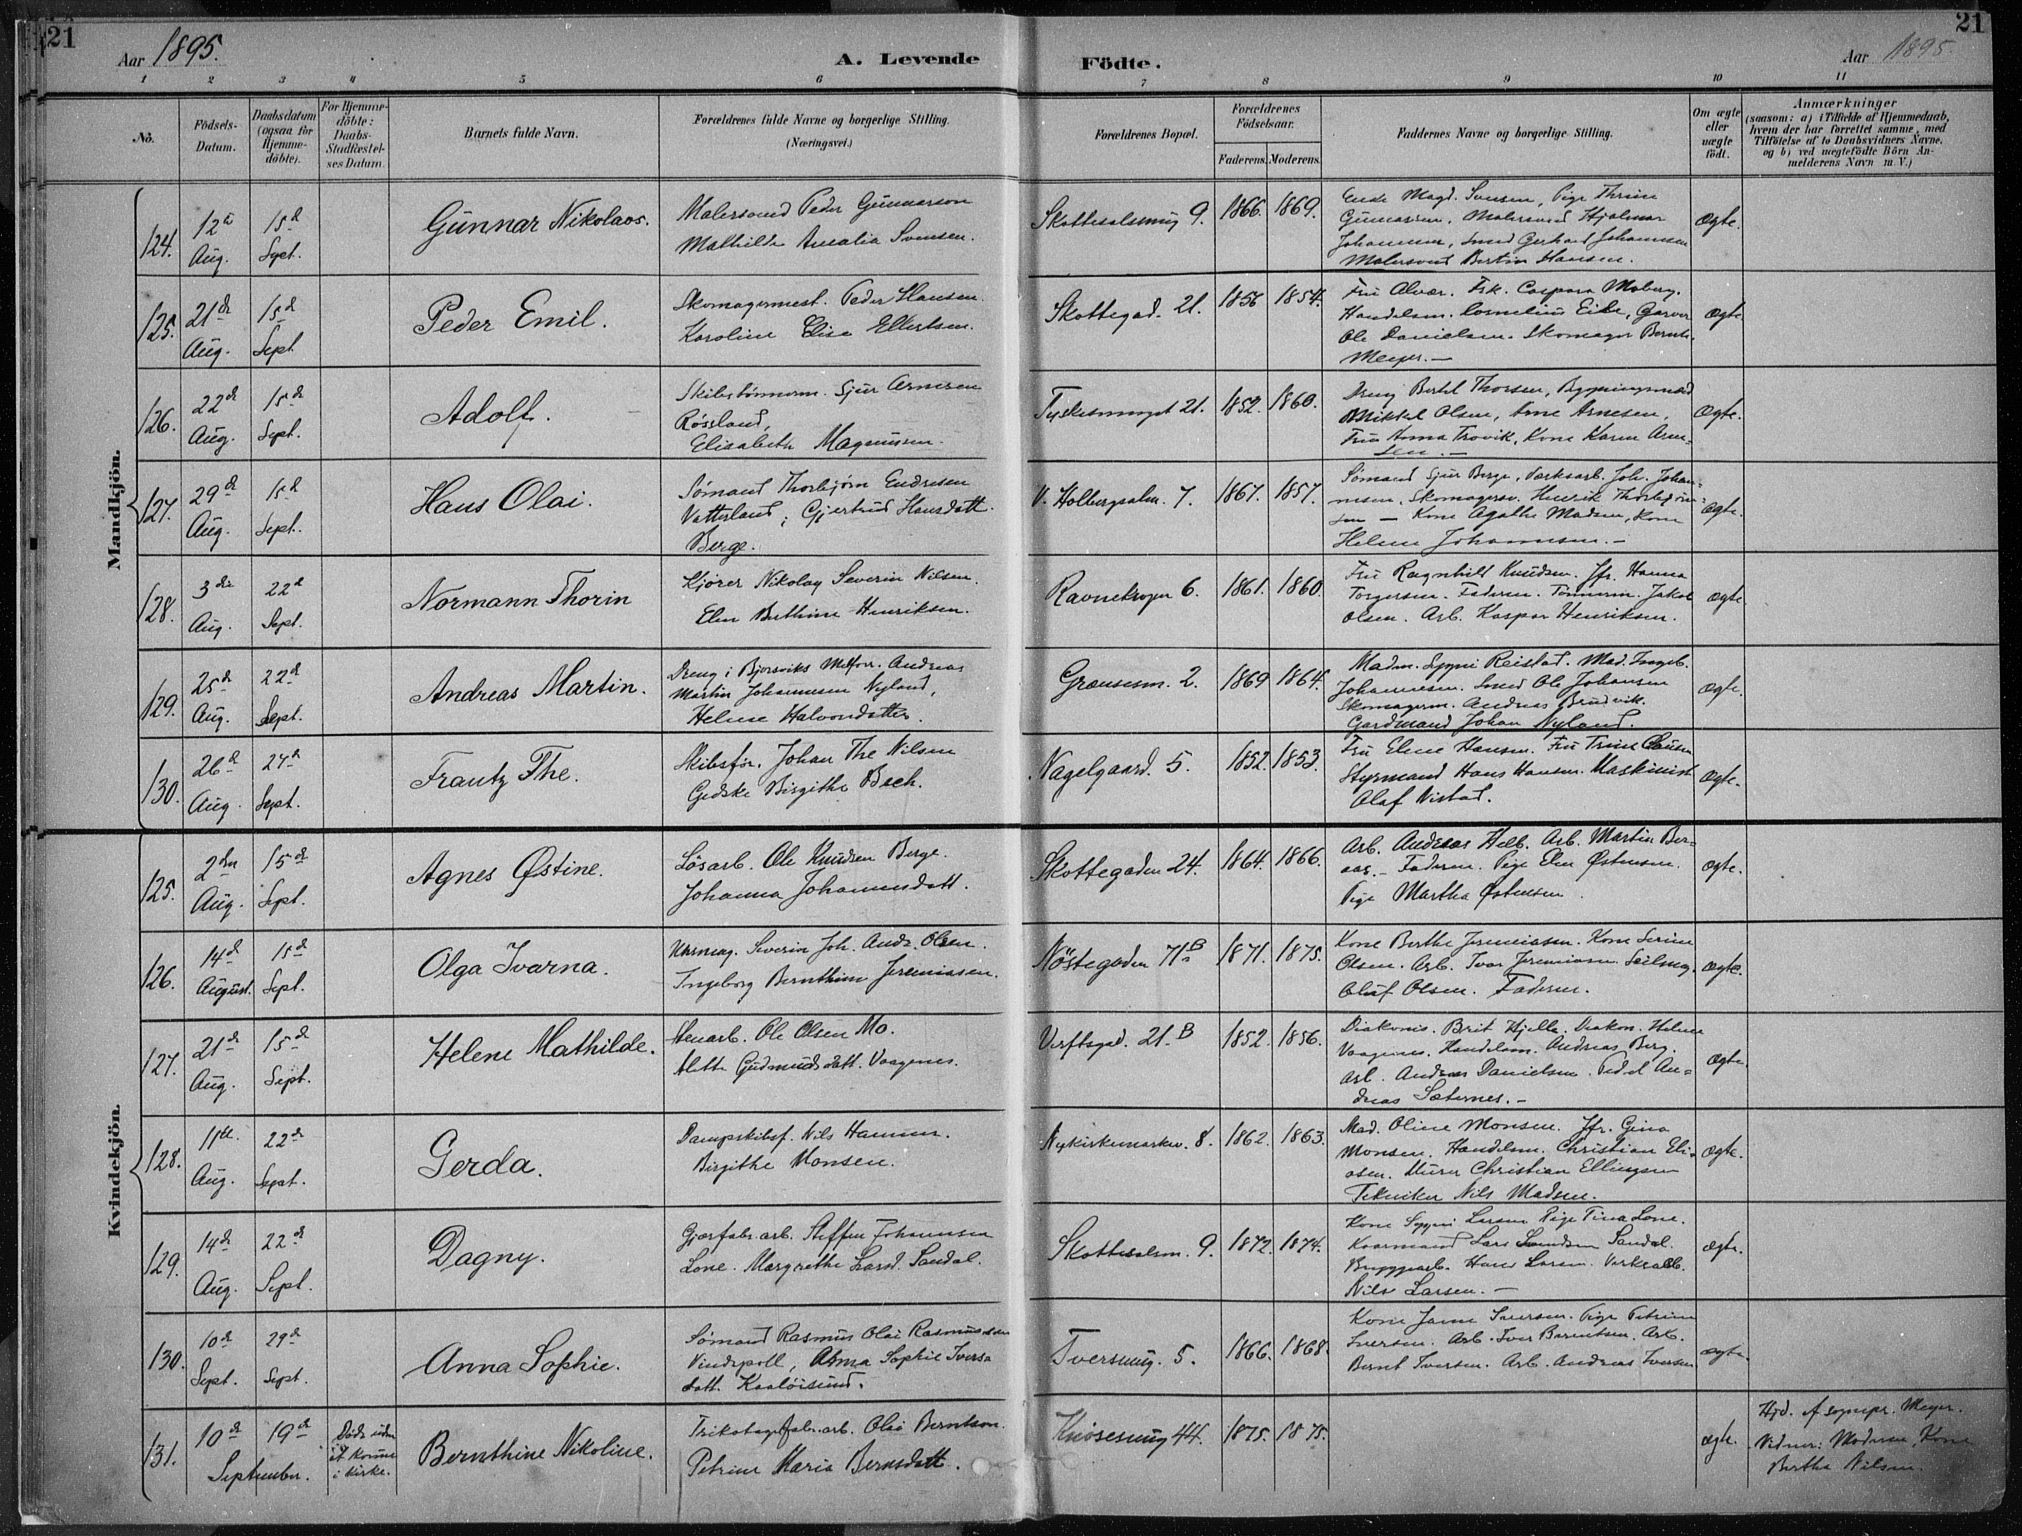 21
Aar 1895.
A. Levende Födte.
Aar 1895
21
1 2 3 4 5 6 7 8 9 10 11
No.
Födsels-Datum.
Daabsdatum (ogsaa for Hjemmedöbte).
For Hjemmedöbte: Daabs-Stadfæstelses Datum.
Barnets fulde Navn.
Forældrenes fulde Navne og borgerlige Stilling. (Næringsvei.)
Forældrenes Bopæl.
Forældrenes Födselsaar.
Faderens. Moderens.
Faddernes Navne og borgerlige Stilling.
Om ægte eller uægte födt.
Anmærkninger
(saasom: a) i Tilfælde af Hjemmedaab,
hvem der har forrettet samme, med
Tilföielse af to Daabsvidners Navne,
og b) ved uægtefödte Börn An-
melderens Navn m. V.)
Mandkjön.
124. 12te Aug. 15d Sept. Gunnar Nikolaos.
Malersvend Peder Gunnarson
Mathilde Amalia Svensen.
Skottesalsmug 9. 1866. 1869.
Enke Magd. Svensen, Pige Thrine
Gunnarsen, Malersvend Hjalmar
Johannesen, Smed Gerhard Johannsen
Malersvend Bertin Hansen.
Ægte.
125. 21de Aug. 15d Sept Peder Emil.
Skomagermest. Peder Hansen.
Karoline Elisa Ellertsen.
Skottegad. 21. 1856 1854.
Fru Alvær. Frk. Caspara Moberg.
Handelsm. Cornelius Eide, Garver
Ole Danielsen. Skomager Bernt
Meyer. —
Ægte
126. 22de Aug. 15de Sept. Adolf.
Skibstømmerm. Sjur Arnesen
Røssland,
Elisabeth Magnussen.
Tydskesmuget 21. 1852. 1860.
Dreng Bertel Thorsen, Bygningssnedk
Mikkel Olsen, Arne Arnesen,
Fru Anna Trovik, Kone Karen Arne-
sen. —
Ægte.
127. 29de Aug. 15d Sept. Hans Olai.
Sømand Thorbjørn Endresen
Vatterland; Gjertrud Hansdatt.
Berge.
V. Holbergsalm. 7. 1867. 1857.
Sømand Sjur Berge, Værksarb. Joh. Johan-
nesen, Skomagersv. Henrik Thorbjørn-
sen — Kone Agathe Madsen, Kone
Helene Johannesen. —
Ægte.
128. 3die Aug. 22d Sept. Normann Thorin
Kjører Nikolay Severin Nilsen.
Elen Berthine Henriksen.
Ravnekrogen 6. 1861. 1860.
Fru Ragnhild Knudsen. Jfr. Hanna
Torgersen. Faderen. Tømmerm. Jakob
Olsen. Arb. Kaspar Henriksen.
Ægte.
129. 25de Aug. 22de Sept. Andreas Martin.
Dreng i Bjørsviks Melforr. Andreas
Martin Johannesen Nyland,
Heline Halvorsdatter.
Grænsesm. 2. 1869 1864.
Madm. Sygni Reistad. Mad. Ingeb.
Johannesen. Smed Ole Johansen
Skomagerm. Andreas Brudvik.
Gardmand Johan Nyland.
Ægte.
130. 26de Aug. 24de Sept. Frantz The.
Skibsfør. Johan The Nilsen
Gidske Birgithe Bech.
Nagelgaard. 5. 1852. 1853.
Fru Eline Hansen. Fru Trine Clausen
Styrmand Hans Hansen. Maskinist
Olaf Nistad.
Ægte.
Kvindekjön.
125. 2den Aug. 15de Sept. Agnes Østine.
Løsarb. Ole Knudsen Berge.
Johanna Johannesdatt.
Skottegaden 24. 1864. 1866.
Arb. Andreas Helb. Arb. Martin Ber-
aas. — Faderen. Pige Elen Østensen.
Pige Martha Østensen.
Ægte.
126. 14de August. 15de Sept. Olga Ivarna.
Severin Joh. Andr. Olsen.
Ingeborg Bernthine Jeremiasen.
Nöstegaden 71.B 1871. 1875.
Kone Berthe Jeremiassen. Kone Serine
Olsen. Arb. Ivar Jeremiasen. Seilmag.
Oluf Olsen. Faderen.
Ægte.
127. 21de Aug. 15de Sept. Helene Mathilde.
Stenarb. Ole Olsen Mo.
Alette Gudmundsdatt. Vaagenes.
Verftsgad. 21.B 1852. 1856.
Diakonis. Brit Hjelle. Diakon. Helene
Vaagenes. Handelsm. Andreas Berg.
Arb. Andreas Danielsen. An-
dreas Sæternes. —
Ægte.
128. 11te Aug. 22de Sept. Gerda.
Dampskibsf. Nils Hansen.
Birgithe Monsen.
Nykirkemarken. 8. 1862. 1863.
Mad. Oline Monsen. Jfr. Gina
Monsen. Handelsm. Christian Eli-
asen. Murer Christian Ellingsen
Tekniker Nils Madsen.
Ægte.
129. 14de Aug. 22de Sept. Dagny.
Gjærfabr. arb. Steffen Johannesen
Lone. Margrethe Larsd. Sandal.
Skottesalsm. 9. 1872. 1874.
Kone Sygni Larsen Pige Tina Lone.
Kaarmand Lars Sandal.
Bryggearb. Hans Larsen. Verksarb.
Nils Larsen. —
Ægte.
130. 10de Sept. 29de Sept. Anna Sophie.
Sømand Rasmus Olai Rasmussen
Vindspoll, Anna Sophie Ivers-
datt. Kaaløisund.
Tversmug. 5. 1866. 1868.
Kone Janne Iversen. Pige Petrine
Iversen. Arb. Iver Berentsen. Arb.
Bernt Iversen. Arb. Andreas Iversen
Ægte.
131. 10de 19de September. Döds uden at komme i kirke. Bernthine Nikoline.
Trikotagefabr. arb. Olai Berntsen.
Petrine Maria Berntsdatt.
Knøsesmug 44. 1875. 1875.
Ægte.
Hjd. af sognepr. Meyer.
Vidner: Moderen, Kone
Bertha Nilsen.